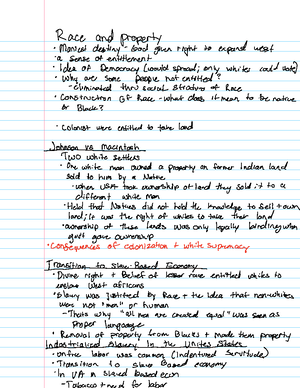 Race and property
• Manical destiny - God given right to expand west
• a sense of entitlement
• Idea of Democracy (would spread; only whites could vote)
• Why are some people not entitled?
- eliminated thru social structure of Race
• Construction of Race - what does it mean to be native
or Black?
• Colonist were entitled to take land
Johnson vs Macintosh
• Two white settlers
• One white man owned a property on former Indian land
sold to him by a Native
• when USA took ownership of land they sold it to a
different white man
• Held that Natives did not hold the knowledge to sell + own
land; it was the right of whites to take their land
• ownership of these lands was only legally binding when
govt gave ownership
• Consequences of colonization + white supremacy
Transition to Slave-Based Economy
• Divine right + Belief of labor have entitled whites to
enslave West africans
• Slavery was justified by Race + the idea that nonwhites
were not "men" or human
- Thats why "all men are created equal" was seen as
proper language
• Removal of property from Blacks + made them property
Industrialized Slavery in the Unites States
• Entire labor was common (indentured servitude)
• Transition to slave Based economy
• In VA a slaved based econ
- Tobacco + need for labor